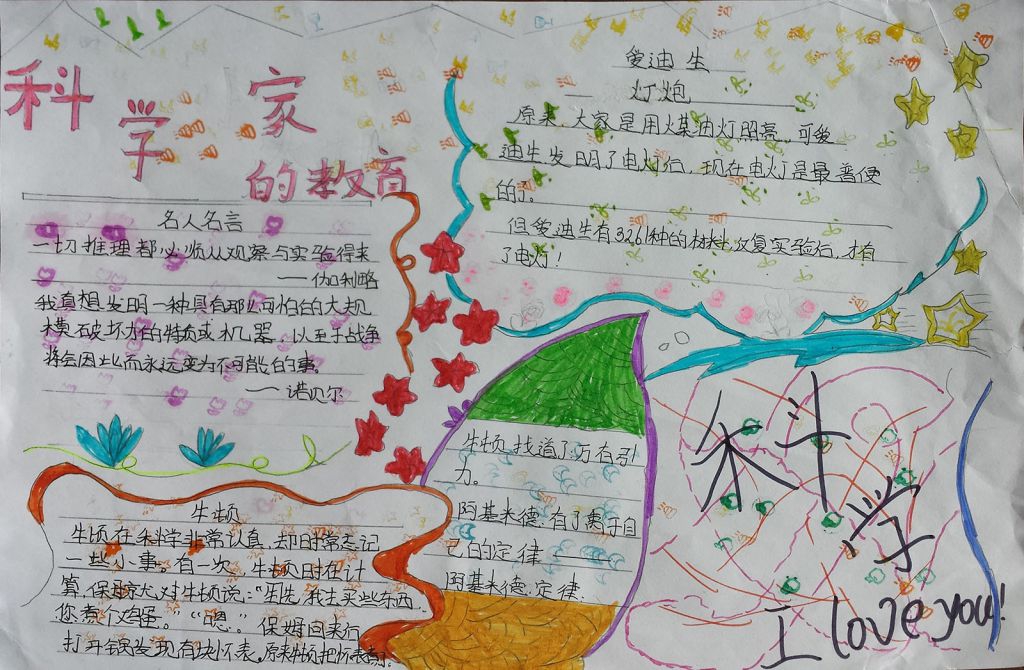 科学家
的教育
名人名言
一切推理都必须从观察与实验得来
——伽利略
我真想发明一种具有那么可怕的大规
模破坏力的特质或机器，以至于战争
将会因此而永远变为不可能的事
——诺贝尔
爱迪生
灯炮
原来，大家是用煤油灯照亮，可爱
迪生发明了电灯后，现在电灯是最普便
的了。
但爱迪生有3261种的材料反复实验后，才有
了电灯！
牛顿
牛顿在科学非常认真，却时常忘记
一些小事。有一次，牛顿时在计
算，保母
对牛顿说：“先生，我去买些东西，
您煮个鸡蛋。”“嗯。”保姆回来后
打开锅发现有块怀表，原来牛顿把怀表煮了
牛顿，找道了万有引
力。
阿基米德，有了属于自
己的定律
阿基米德定律
科学
I love you!